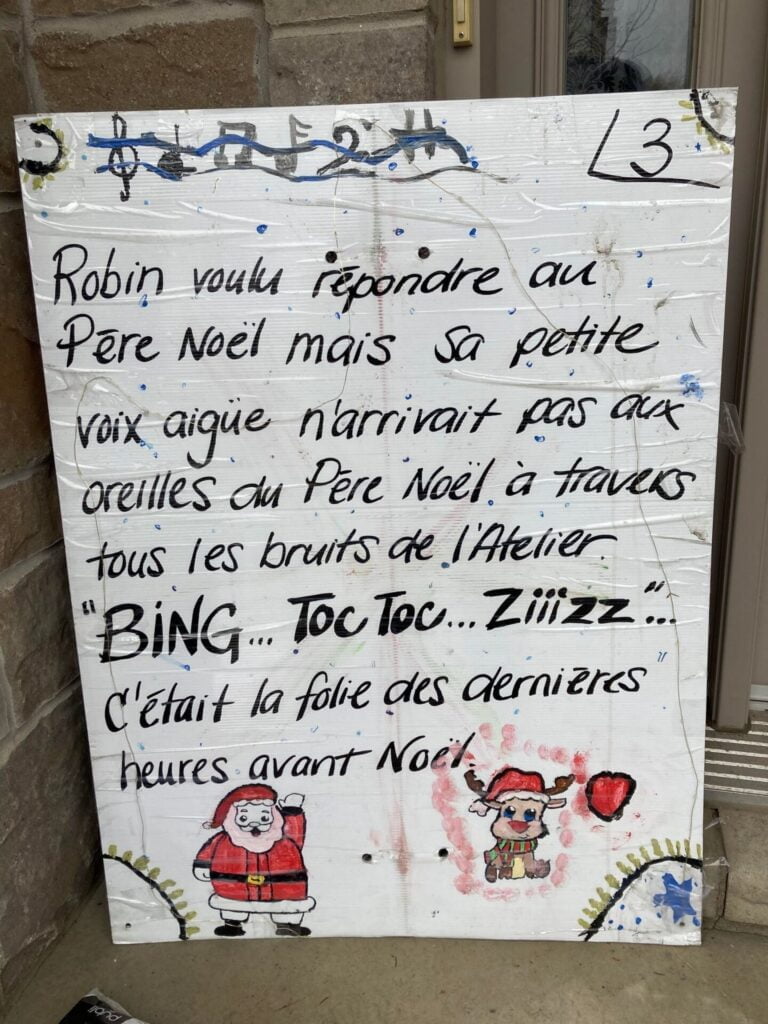 3
Robin voulu répondre au
Père Noël mais sa petite
voix aigüe n'arrivait pas aux
oreilles du Père Noël à travers
tous les bruits de l'Atelier.
"BING... TOC TOC... Ziiizz"...
C'était la folie des dernières
heures avant Noël.
publi